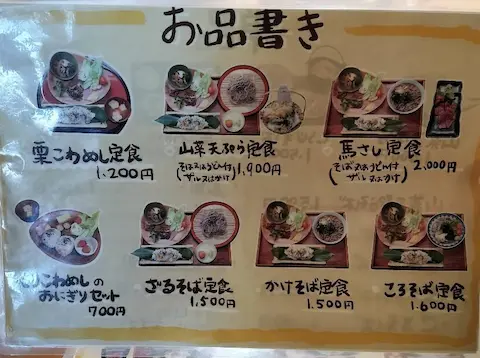 お品書き
栗こわめし定食
1,200円
山菜天ぷら定食
(そば又はうどん付
ザル又はかけ)
1,900円
馬さし定食
(そば又はうどん付
ザル又はかけ)
2,000円
こわめしの
おにぎりセット
700円
ざるそば定食
1,500円
かけそば定食
1,500円
ころそば定食
1,600円